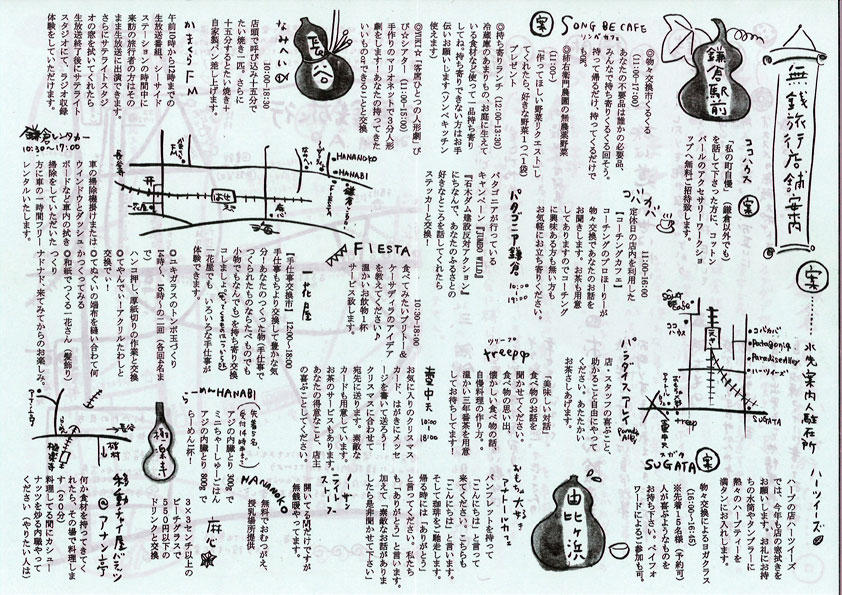 無銭旅行店舗案内
案………水先案内人駐在所
鎌倉駅前
案 SONG BE CAFE
ソンベカフェ
◎物々交換市くるくる
(11:00-17:00)
あなたの不要品は誰かの必要品、
みんなで持ち寄りくるくる回そう。
持って帰るだけ、持ってくるだけで
もOK。
◎持ち寄りランチ (12:00-13:30)
冷蔵庫のあまりもの、お庭に生えて
いる食材など使って一品持ち寄り
してね。持ち寄りできない方はお手
伝いお願いします(ソンベキッチン
使えます)
◎柿右衛門農園の無農薬野菜
(11:00-)
「作ってほしい野菜リクエスト」し
てくれたら、好きな野菜1つ(1袋)
プレゼント
ココハウス 案
「私の町自慢」(鎌倉以外でも)
を話して下さった方に、コットン
パールのアクセサリーワークショ
ップへ無料ご招待致します。
コバカバ 案
11:00-16:00
定休日の店内を利用した
【コーチングカフェ】
コーチングのプロほーりーが
物々交換であなたのお話を
お聞きします。お茶も用意
してありますのでコーチング
に興味ある方も無い方も
お気軽にお立ち寄りください。
パタゴニア鎌倉
10:00〜19:00
パタゴニアが行っている
キャンペーン『JUMBO WILD』
『石木ダム建設反対アクション』
にちなんで、あなたのふるさとの
好きなところを話してくれたら
ステッカーと交換!
SONG BE CAFE
ココハウス
コバカバ
Patagonia
ParadiseAlley
ハーツイーズ
SUGATA
パラダイスアレイ
店・スタッフの喜ぶこと、
助かることを自由にやって
ください。あたたかい
お茶さしあげます。
ツリープ
treep
「美味しい対話」
食べ物のお話を
聞かせてください。
食べ物の思い出、
懐かしい食べ物の話、
自慢料理の作り方。。
温かい三年番茶を用意
してお待ちしてます!
壷中天
10:00〜18:00
お気に入りのクリスマス
カード、はがきにメッセ
ージを書いて送ろう!
クリスマスに合わせて
宛先に送ります。素敵な
カードも用意しています。
お茶のサービスもあります。
あなたの得意なこと、店主
の喜ぶことしてください。
ハーツイーズ
ハーブの店ハーツイーズ
では、今年も店の窓拭きを
お願いします。お礼にお持
ちの水筒やタンブラーに
熱々のハーブティーを
満タンにお入れします。
SUGATA 案
スガタ
(16:00-16:45)
物々交換によるヨガクラス
※先着15名様(予約可)
人が喜ぶようなものを
お持ち下さい。ペイフォ
ワードによるご参加も可。
由比ヶ浜
パンフレットを持って
「こんにちは」と言って
来てください。こちらも
「こんにちは」と言います。
そして珈琲をご馳走します。
帰る時には「ありがとう」
と言ってください。私たち
も「ありがとう」と言います。
加えて「素敵なお話がありま
したら是非聞かせて下さい」
開いてる間だけですが
無銭喫やってます。
HANANOKO
無料でおむつがえ、
授乳場所提供
麻心
3×3センチ以上の
ビーチグラスで
550円以下の
ドリンクと交換
長谷
なみへい
10:00-18:30
店頭で呼び込み十五分で
たい焼き一匹。さらに
十五分するとたい焼き+
自家製パン差し上げます。
かまくらFM
午前10時から5時までの
生放送番組、シーサイド
ステーションの時間中に
来訪の旅行者の方はその
まま生放送に出演できます。
さらにサテライトスタジ
オの窓を拭いてくれたら
生放送終了後にサテライト
スタジオにて、ラジオ収録
体験をしていただけます。
鎌倉レンタカー
10:30〜17:00
車の掃除機掛けまたは
ウィンドウとダッシュ
ボードなど車内の拭き
掃除をしていただいた
方に車の一時間フリー
レンタルいたします。
FM
HANANOKO
HANABI
なみへい
はせ
麻心
一花屋
FIESTA
10:30-18:30
食べてみたいブリトー&
ケーサディヤのアイデア
を教えてください♪
温かいお飲物1杯
サービス致します。
一花屋
【手仕事交換市】 12:00〜18:00
手仕事もちより交換して豊かな気
分!あなたのつくった物(手仕事で
つくられたものならたべものでも
小物でもなんでも)を持ち寄り交換
コしましょ
一花屋でも、いろいろな手仕事が
体験できます。
○ユキガラスのトンボ玉づくり
○でやんでぃーアクリルたわしと
交換でぃ!
○てぬぐいの端布を縫い合わせて何
かつくってみる
○和紙でつくる一花さん(髪飾り)
つくり
ナドナド、来てみてからのお楽しみ。
らーめんHANABI
アジの内臓とり 300gで
ミニちゃーしゅーごはん
アジの内臓とり 800gで
らーめん一杯!
極楽寺
移動チャイ屋バテッツ
@アナン亭
何か食材を持ってきてく
れたら、その場で料理しま
す(20分)
料理してる間にカシュー
ナッツを炒る内職やって
ください(やりたい人は)